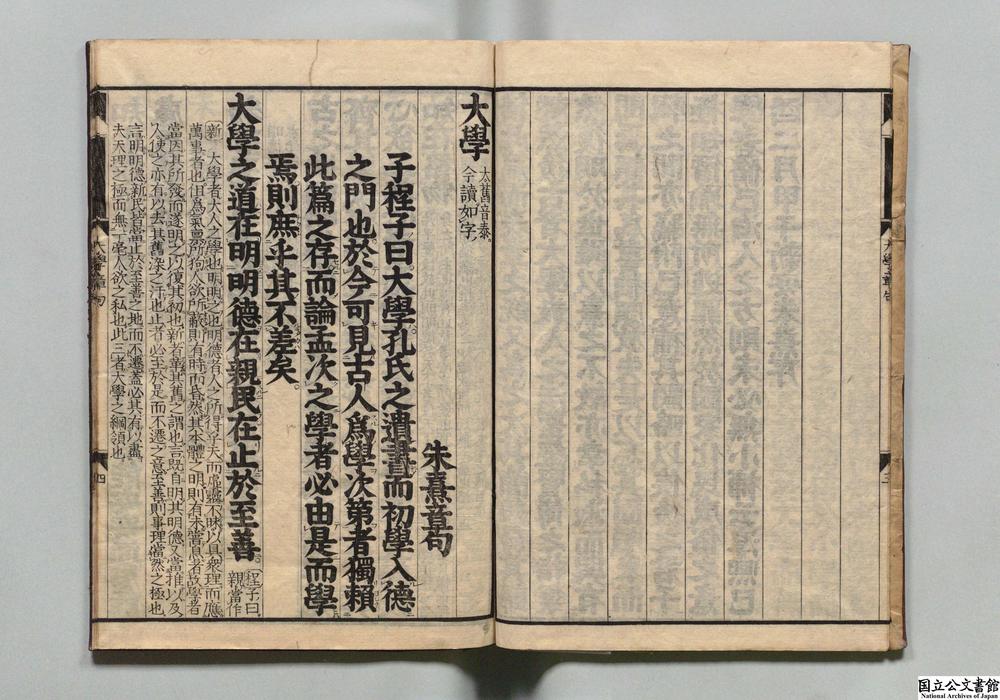 大學章句 三
大學
太舊音泰
今讀如字
朱熹章句
子程子曰大學孔氏之遺書而初學入德
之門也於今可見古人爲學次第者獨賴
此篇之存而論孟次之學者必由是而學
焉則庶乎其不差矣。
大學之道在明明德在親民在止於至善。
程子曰
親當作
新 大學者大人之學也明明之也明德者人之所得乎天而虛靈不昧以具衆理而應
萬事者也但爲氣稟所拘人欲所蔽則有時而昏然其本體之明則有未嘗息者故學者
當因其所發而遂明之以復其初也新者革其舊之謂也言既自明其明德又當推以及
人使之亦有以去其舊染之汙也止者必至於是而不遷之意至善則事理當然之極也
言明明德新民皆當止於至善之地而不遷蓋必其有以盡
夫天理之極而無一毫人欲之私也此三者大學之綱領也
大學章句 四
国立公文書館
National Archives of Japan